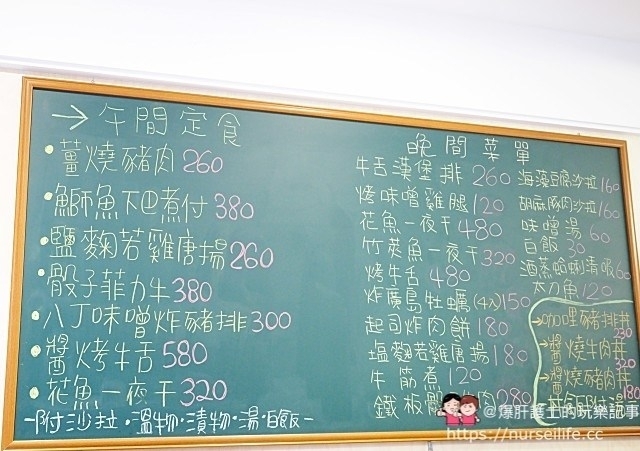 →午間定食
•薑燒豬肉260
•鰤魚下巴煮付380
•鹽麴若雞唐揚260
•骰子菲力牛380
•八丁味噌炸豬排300
•醬烤牛舌580
•花魚一夜干320
-附沙拉·溫物·漬物·湯·白飯-
晚間菜單
牛舌漢堡排260
烤味噌雞腿120
花魚一夜干480
竹莢魚一夜干320
烤牛舌480
炸廣島牡蠣(4入)150
起司炸肉餅180
塩麴若雞唐揚180
牛筋煮120
鐵板 肉280
海藻豆腐沙拉160
胡麻豚肉沙拉160
味噌湯60
白飯20
酒蒸蛤蜊清湯60
太刀魚120
→咖哩豬排丼
230
→醬燒牛肉丼
320
→醬燒豬肉丼
180
@爆肝護士的玩樂記事
https://nurseilife.cc